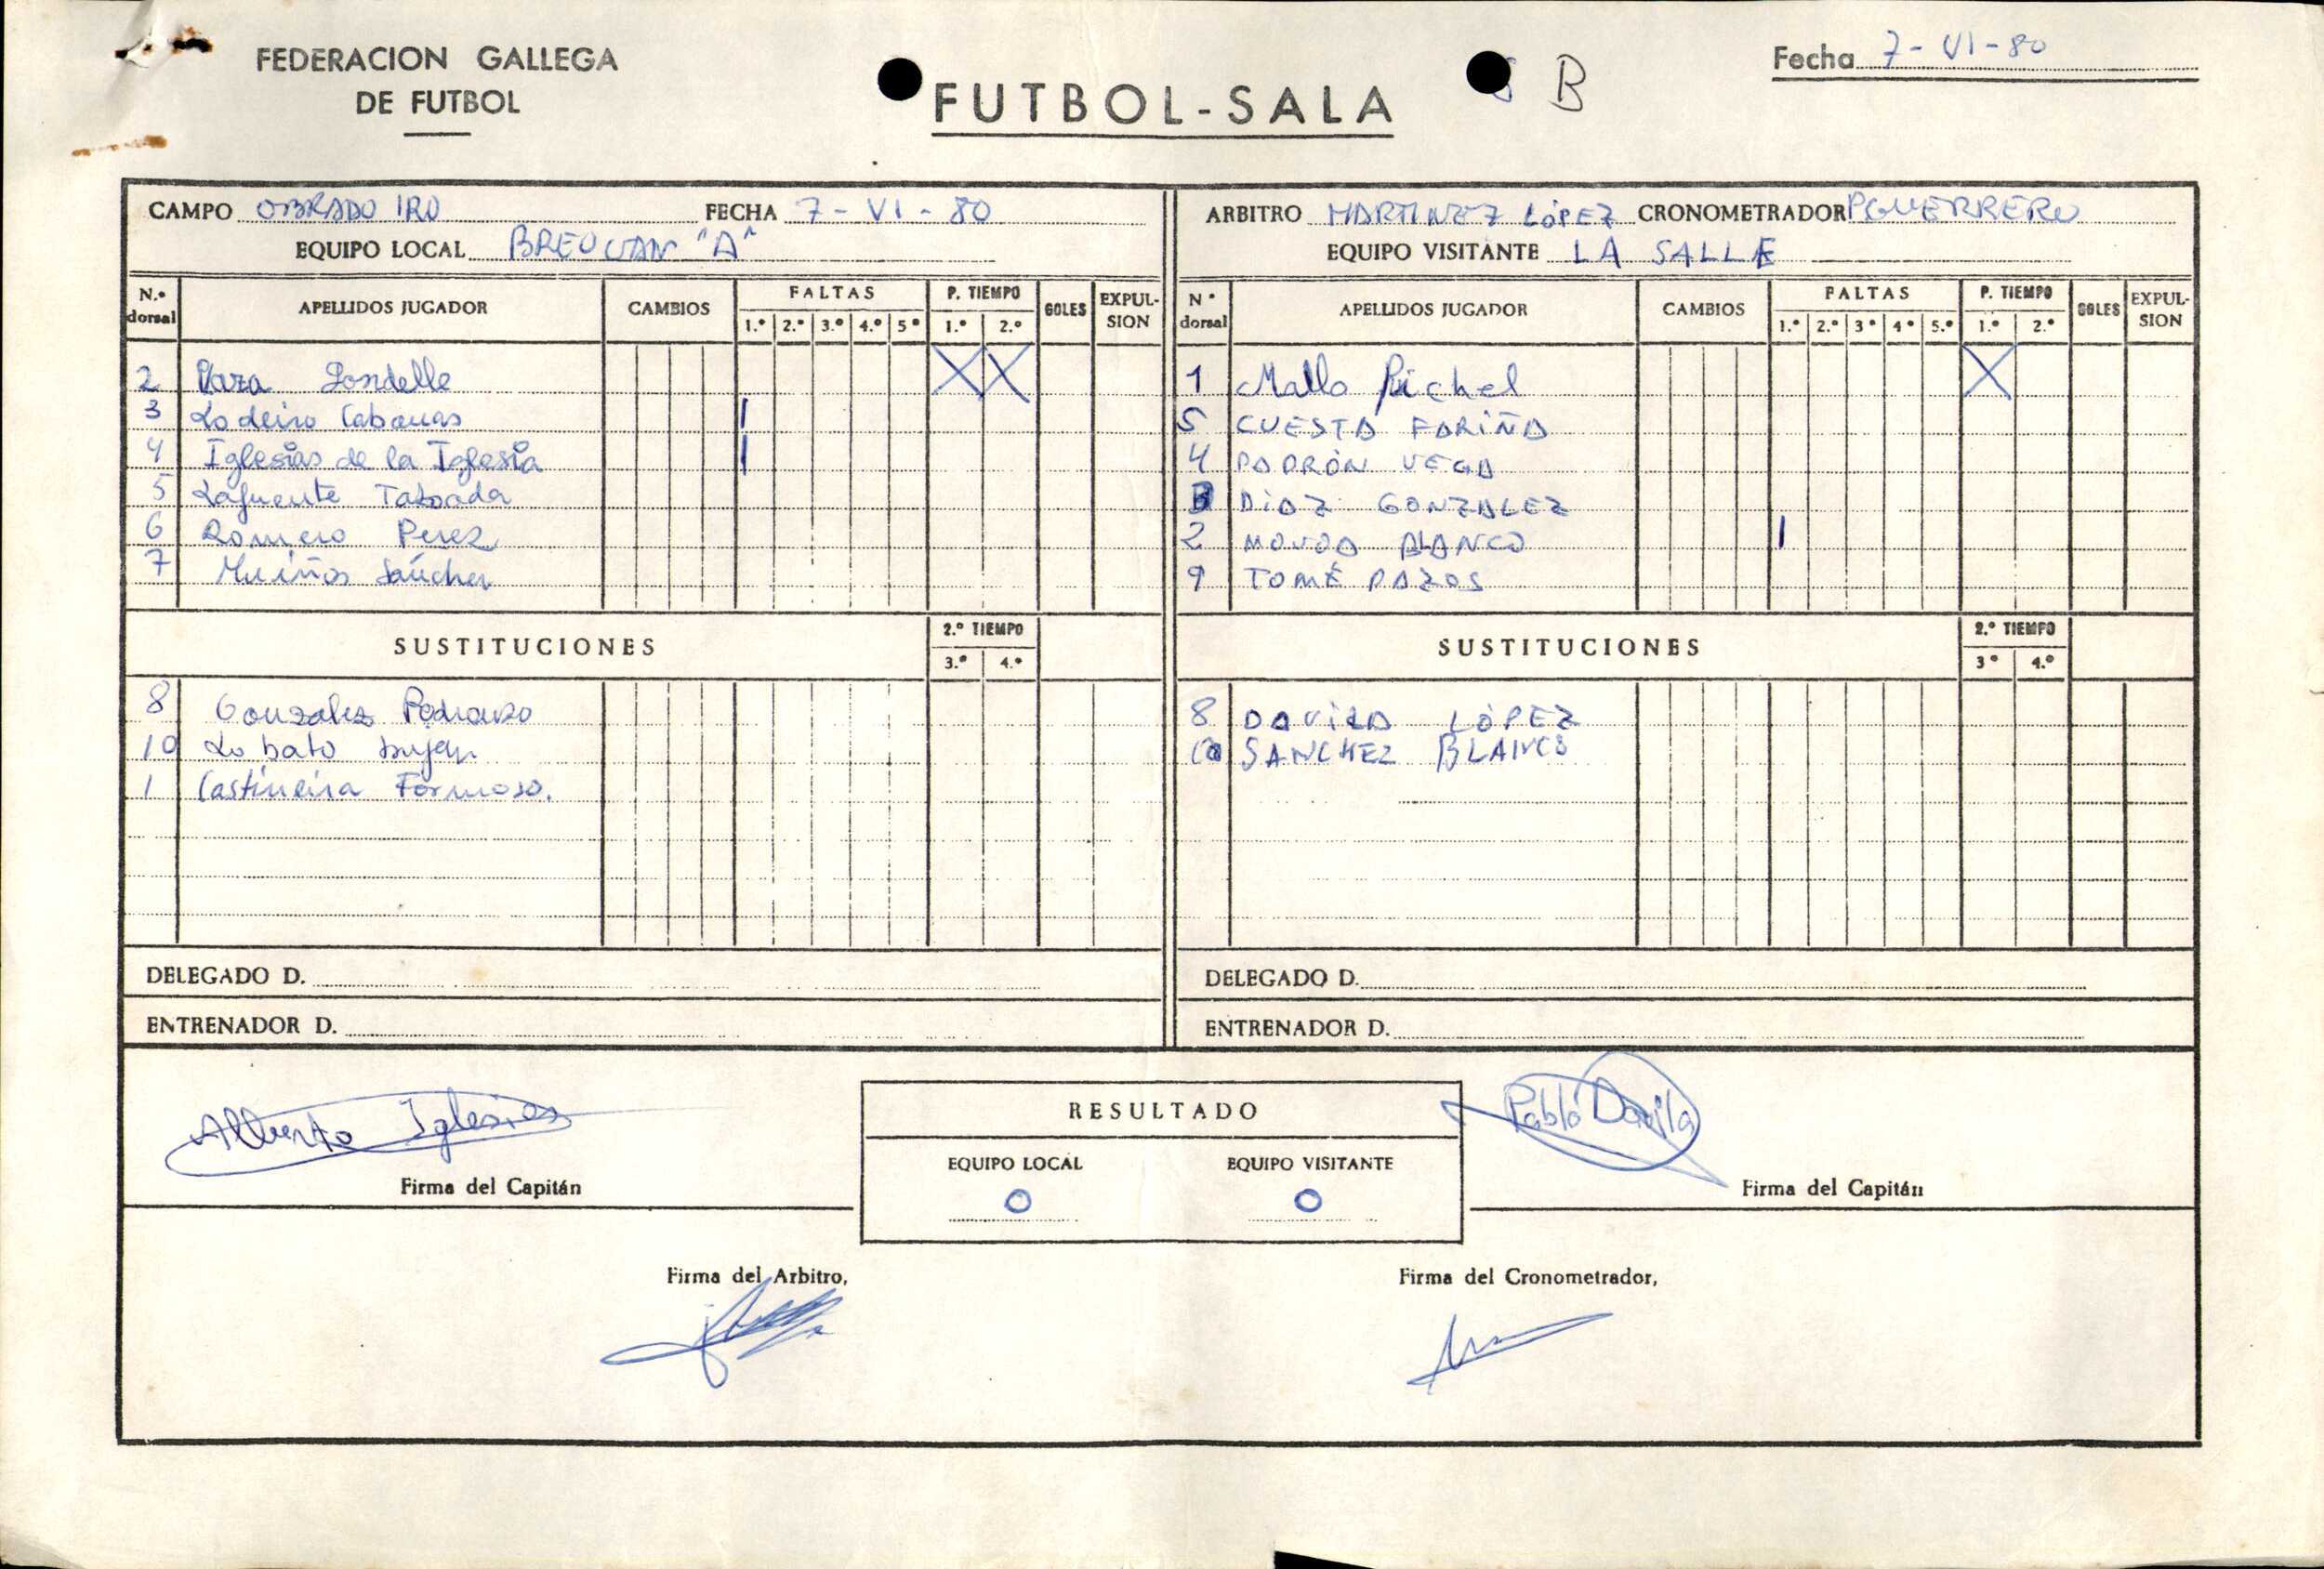 FEDERACION GALLEGA
DE FUTBOL
FUTBOL-SALA
B
Fecha 7-VI-80
CAMPO OBRADOIRO FECHA 7-VI-80
EQUIPO LOCAL BREOGAN "A"
N.º dorsal APELLIDOS JUGADOR CAMBIOS FALTAS P. TIEMPO GOLES EXPULSION
1.º 2.º 3.º 4.º 5º 1.º 2.º
2
3 Lodeiro Cabanas
4 Iglesias de la Iglesia
5 Lafuente Taboada
6 Romero Perez
7 Muiños Sánchez
SUSTITUCIONES 2.º TIEMPO
3.º 4.º
8 Gonzalez
10 Lobato
1 Castineira Formoso.
DELEGADO D.
ENTRENADOR D.
ARBITRO MARTINEZ LÓPEZ CRONOMETRADOR P GUERRERO
EQUIPO VISITANTE LA SALLE
Nº dorsal APELLIDOS JUGADOR CAMBIOS FALTAS P. TIEMPO GOLES EXPULSION
1.º 2.º 3º 4º 5.º 1.º 2.º
1 Mallo Richel
5 CUESTA FARIÑA
4 PADRÓN VEGA
3 DIAZ GONZALEZ
2 NOVOA BLANCO
9 TOMÉ PAZOS
SUSTITUCIONES 2.º TIEMPO
3º 4.º
8 DAVILA LÓPEZ
10 SANCHEZ BLANCO
DELEGADO D.
ENTRENADOR D.
Alberto Iglesias
Firma del Capitán
RESULTADO
EQUIPO LOCAL EQUIPO VISITANTE
0 0
Pablo Davila
Firma del Capitán
Firma del Arbitro,
Firma del Cronometrador,